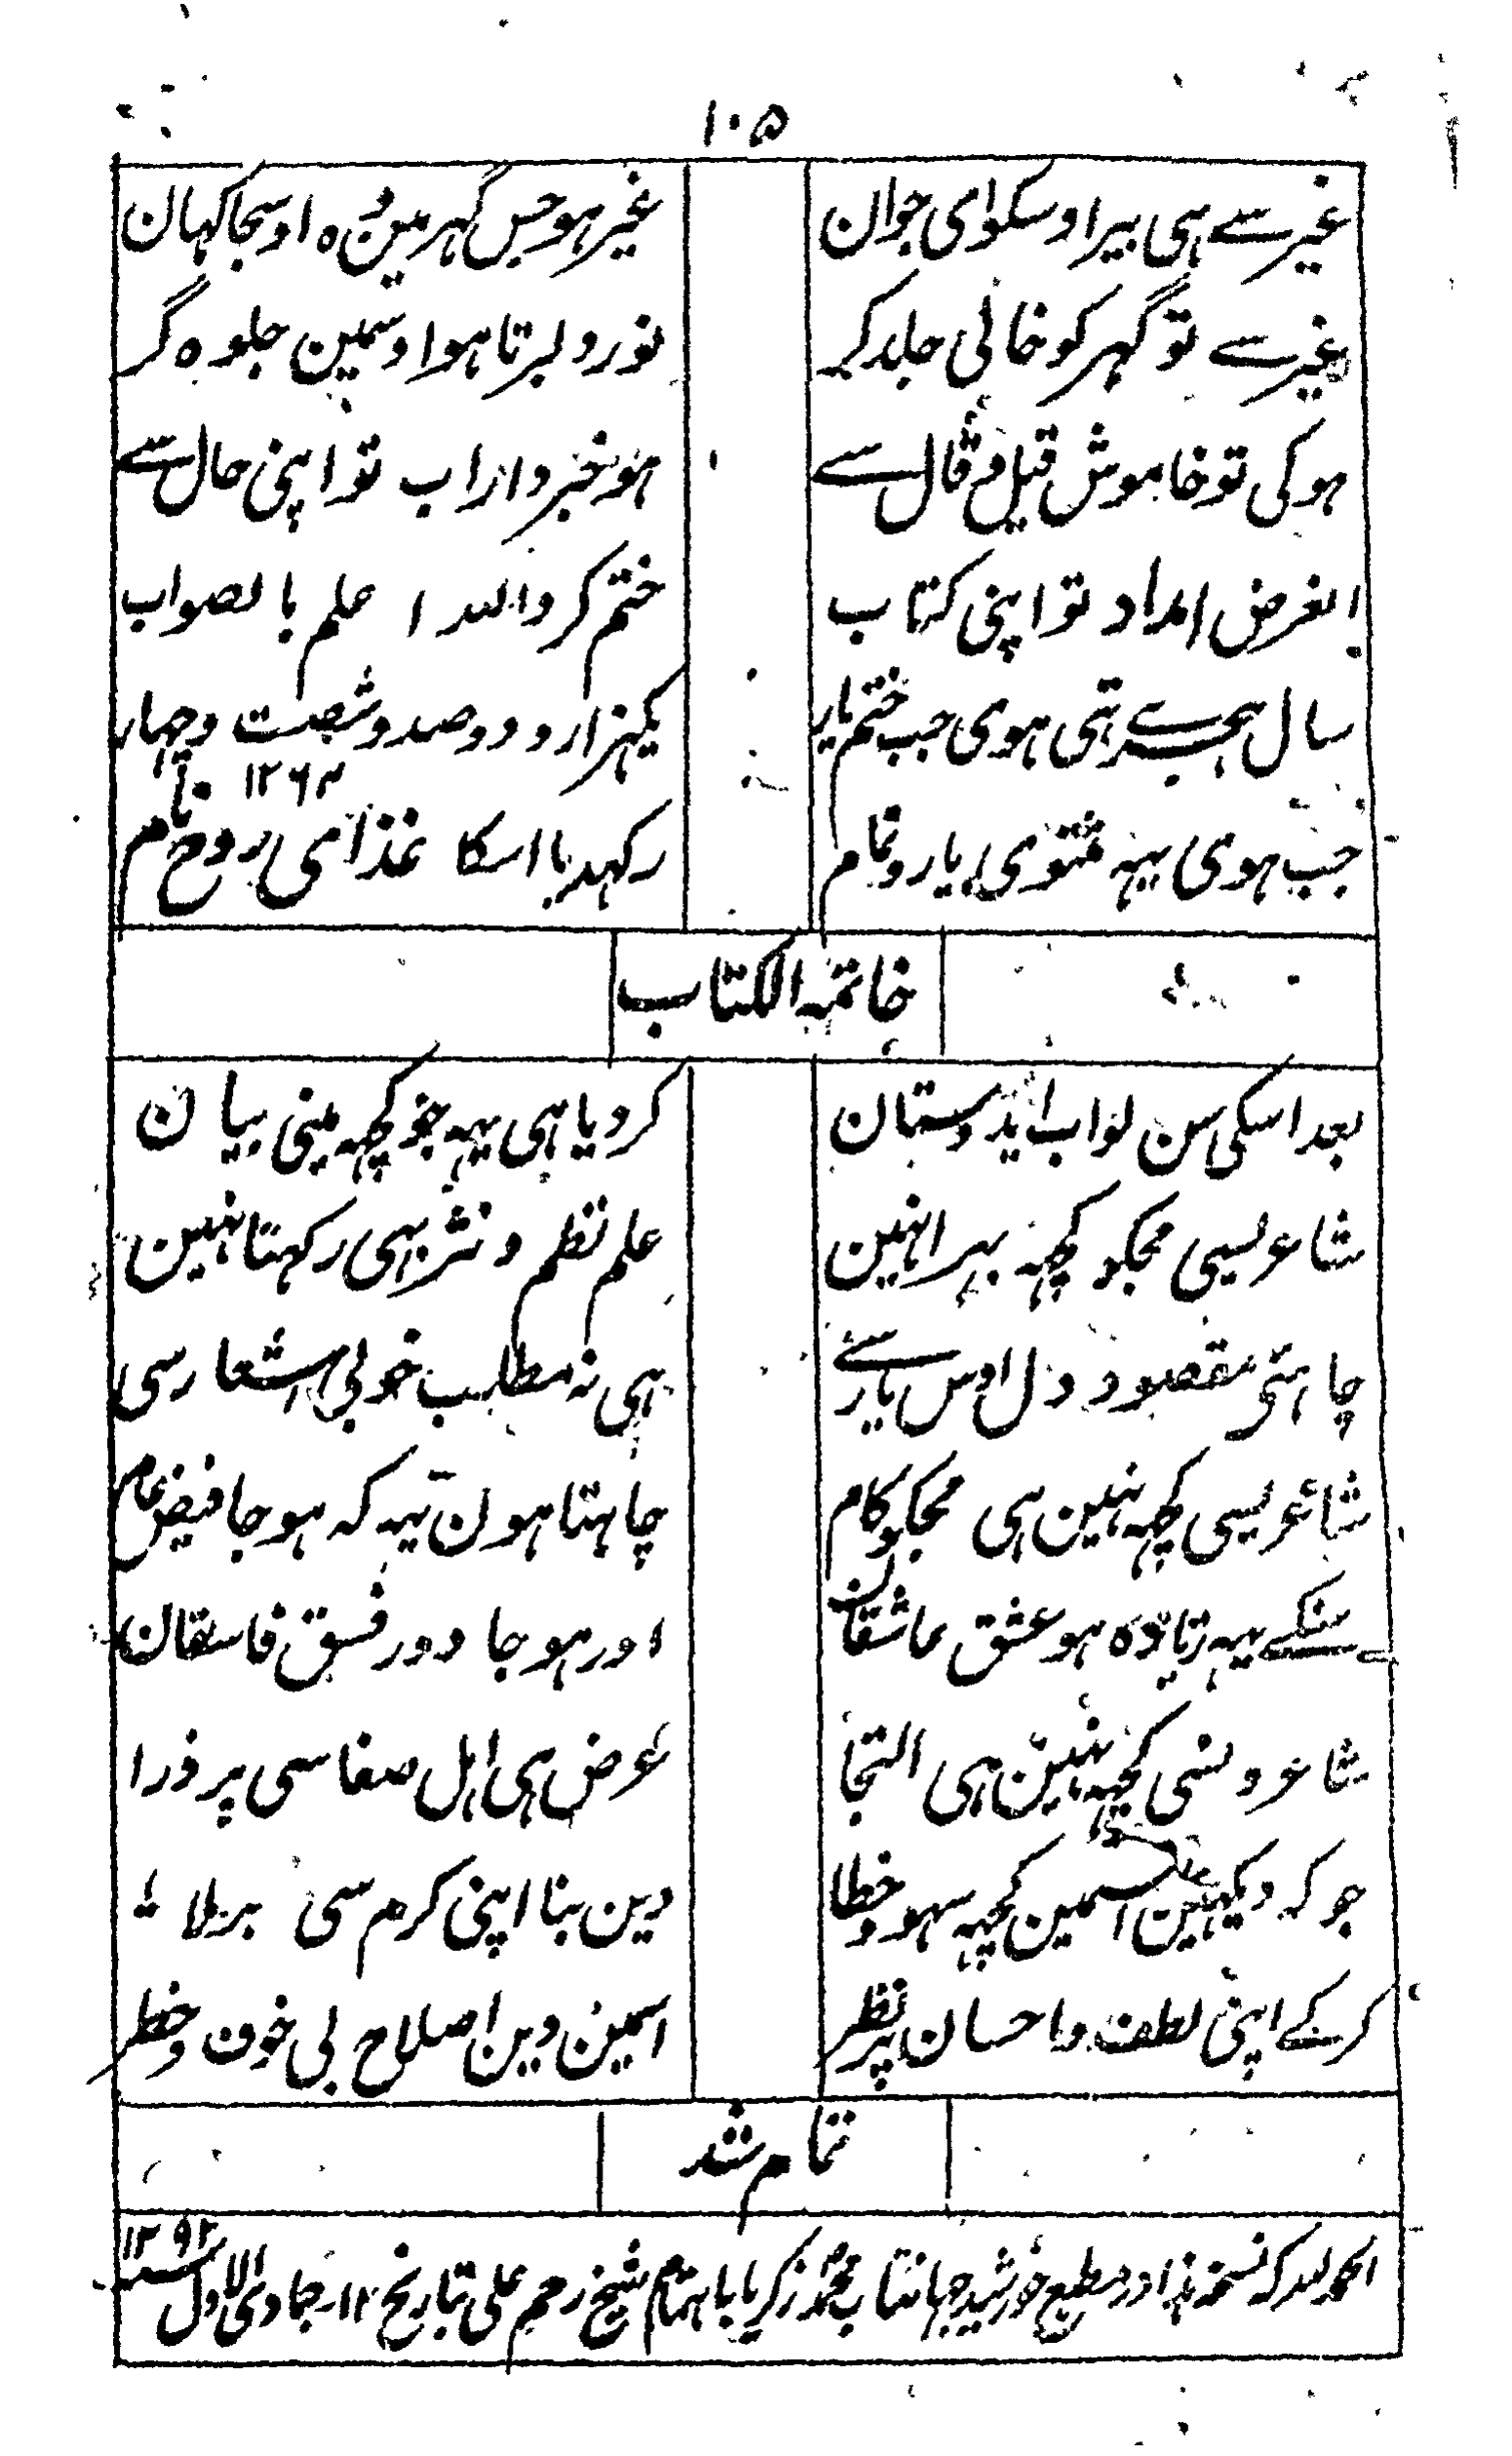 ۱۰۵
غیر سے ہی بیر اوسکو ای جوان غیر ہو جس گہر مین وہ اوسجا کہان
غیر سے تو گہر کو خالی جلد کر نور دلبر تا ہو اوسمین جلوہ گر
ہوکی تو خاموش قیل و قال سے ہو خبردار اب تو اپنی حال سے
الغرض امداد تو اپنی کتاب ختم کر واللہ اعلم بالصواب
سال ہجرے تہی ہوی جب ختم یار یکہزار و دوصد و شصت و چہار
۱۲۶۴
جب ہوی یہہ مثنوی یارو تمام رکہدیا اسکا غذای روح نام
خاتمہ الکتاب
بعد اسکی سن لو اب ایدوستان کردیا ہی یہہ جو کچہہ مینی بیان
شاعریسی مجکو کچہہ بہرا نہین علم نظم و نثر بہی رکہتا نہین
چاہئی مقصود دل اوس یار سے ہی نہ مطلب خوبی اشعار سی
شاعریسی کچہہ نہین ہی مجکو کام چاہتا ہون یہہ کہ ہوجا فیض عام
سنکے یہہ زیادہ ہو عشق عاشقان اور ہوجا دور فسق فاسقان
شاعرونسی کچہہ نہین ہی التجا عرض ہی اہل صفا سی پر ذرا
جو کہ دیکہین اسمین کچہہ سہو و خطا دین بنا اپنی کرم سی برملا
کرکے اپنی لطف و احسان پر نظر اسمین دین اصلاح بی خوف و خطر
تمام شد
الحمد للہ کہ نسخہ ہذا در مطبع خورشید جہانتاب محمد زکریا باہتمام شیخ رحیم علی بتاریخ ۱۲ جمادی الاول سنہ ۱۲۹۲